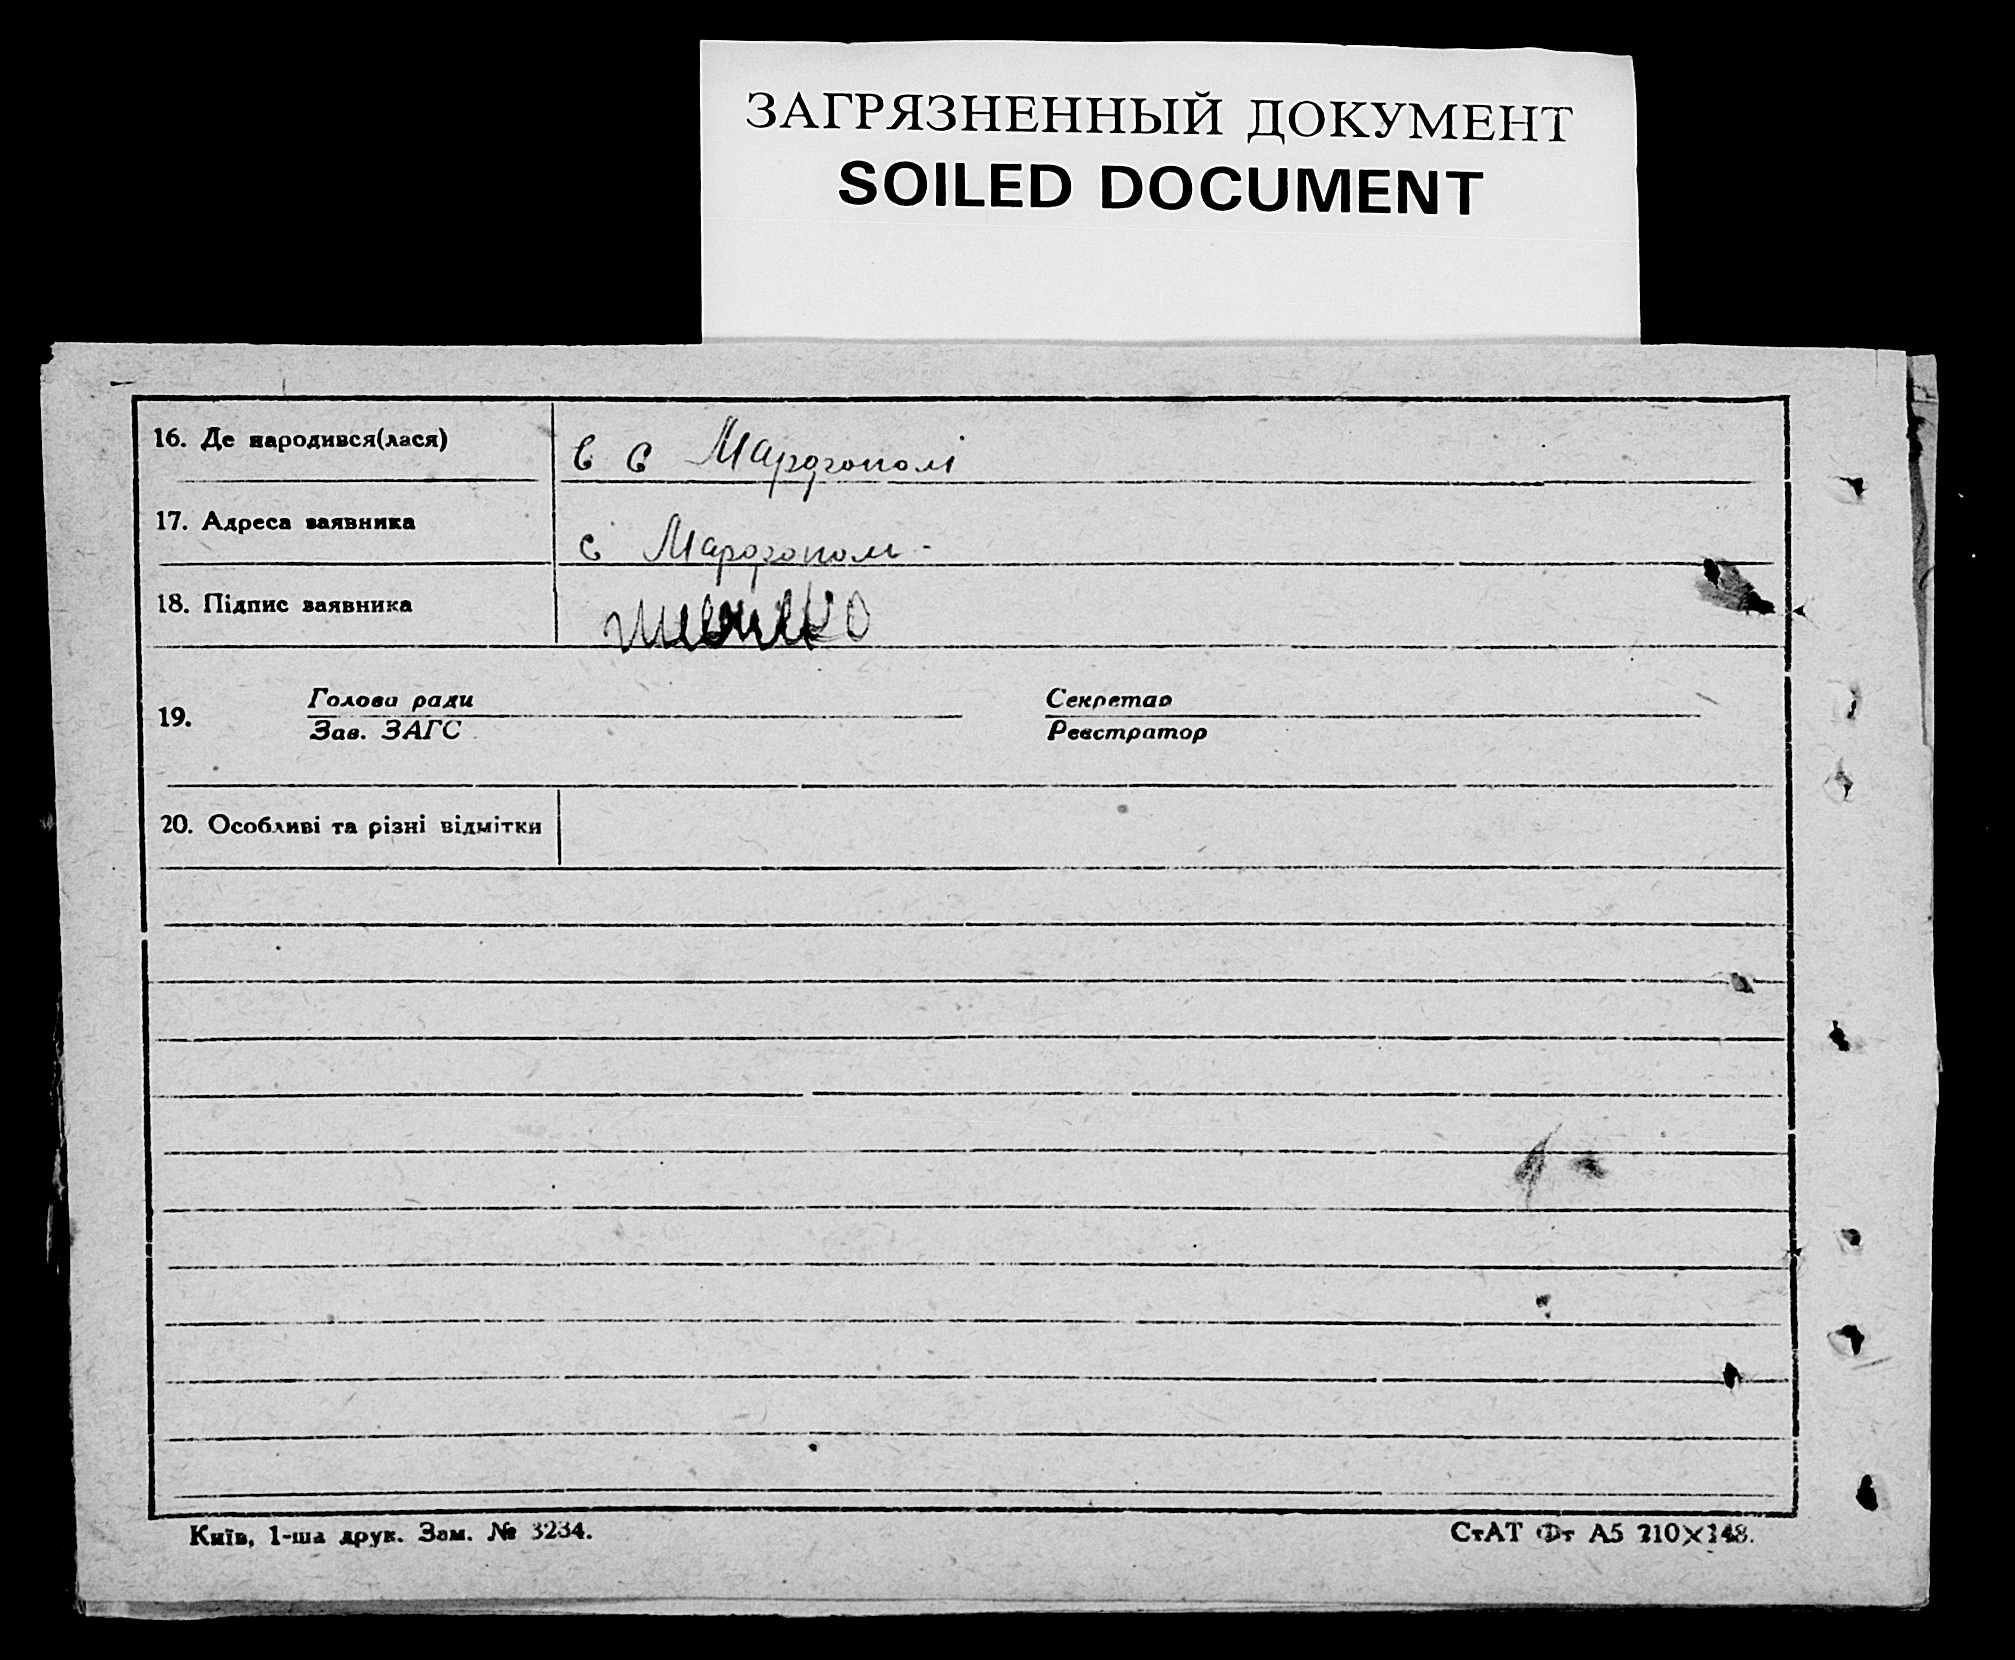 ЗАГРЯЗНЕННЫЙ ДОКУМЕНТ
SOILED DOCUMENT
16. Де народився(лася) в с Мардгополі
17. Адреса заявника с Мардгополі -
18. Підпис заявника
19. Голова ради Секретар
Зав. ЗАГС Реєстратор
20. Особливі та різні відмітки
Київ, 1-ша друк. Зам. № 3234. СтАТ Фт А5 210×148.